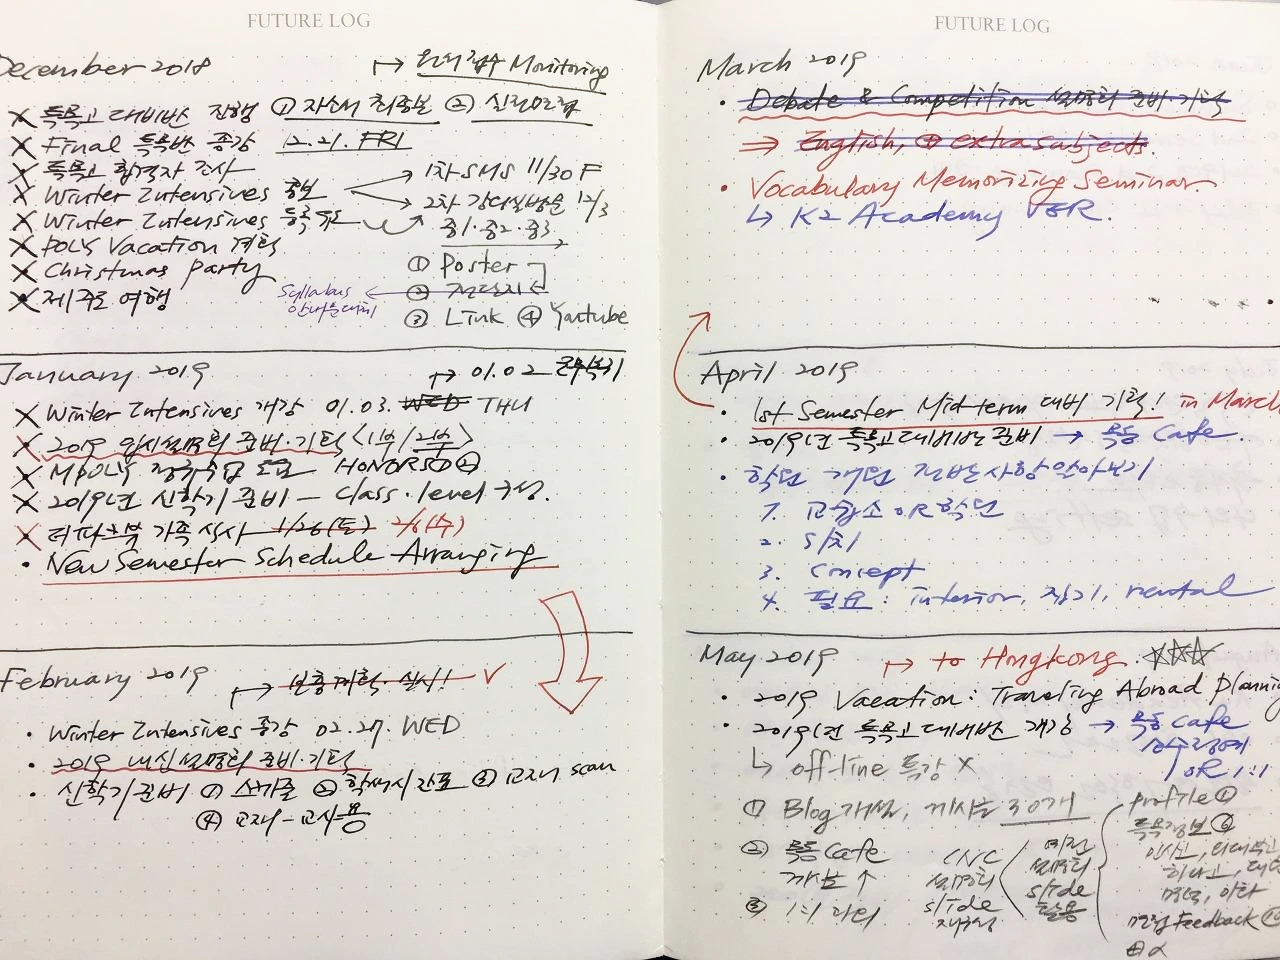 FUTURE LOG
December 2018
→ 원의접수 Monitoring
특목고 대비반 진행 ① 자소서 최종본 ② 실전면접
Final 특목반 종강 12.21. FRI
특목고 합격자 조사
Winter Intensives 홍보 → 1차 SMS 11/30 F
→ 2차 강의실방문 12/3
Winter Intensives 등록 유도
중1·중2·중3
POLY Vacation 계획
Christmas party
제주도 여행
① Poster
② 전단지
Syllabus
③ Link ④ Youtube
January 2019
→ 01.02
Winter Intensives 개강 01.03. WED THU
2019 입시설명회 준비·기획 <1부/2부>
MPOLY 정규수업 HONORS
2019년 신학기 준비 – Class·level 구성.
가족식사 1/26(토) 2/6(수)
New Semester Schedule Arranging
February 2019
→ 보충계획·실시! ✓
Winter Intensives 종강 02.27. WED
2019 내신설명회 준비·기획
신학기준비 ① 스케줄 ② 학생시간표 ③ 교재 scan
④ 교재–교사용
FUTURE LOG
March 2019
Debate & Competition 설명회 준비·기획
⇒ English, ⊕ extra subjects.
Vocabulary Memorizing Seminar
↳ K2 Academy VER.
April 2019
1st Semester Midterm 대비 기획! in March
2019년 특목고대비반 준비 → 목동 Cafe.
학원 개원 전반사항 알아보기
1. 교습소 OR 학원
2. 위치
3. Concept
4. 필요 : interior, 집기, rental
May 2019 → to Hongkong. ☆☆☆
2019 Vacation : Traveling Abroad planning
2019년 특목고대비반 개강 → 목동 Cafe
OR 1:1
↳ off-line 특강 X
① Blog 개설, 게시글 30개
② 목동 Cafe
게시글 ↑
③ 1:1 과외
CNC
설명회
slide
비전
설명회
slide
활용
profile ①
특목정보 ⑥
면접 Feedback
⊕ α